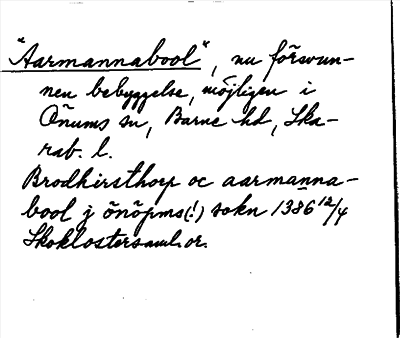 "Aarmannabool", nu försvun-
nen bebyggelse, möjligen i
Önums sn, Barne hd, Ska-
rab. l.
Brodhirsthorp oc aarmanna-
bool j önöpms(!) sokn 1386 12/4
Skoklostersaml. or.